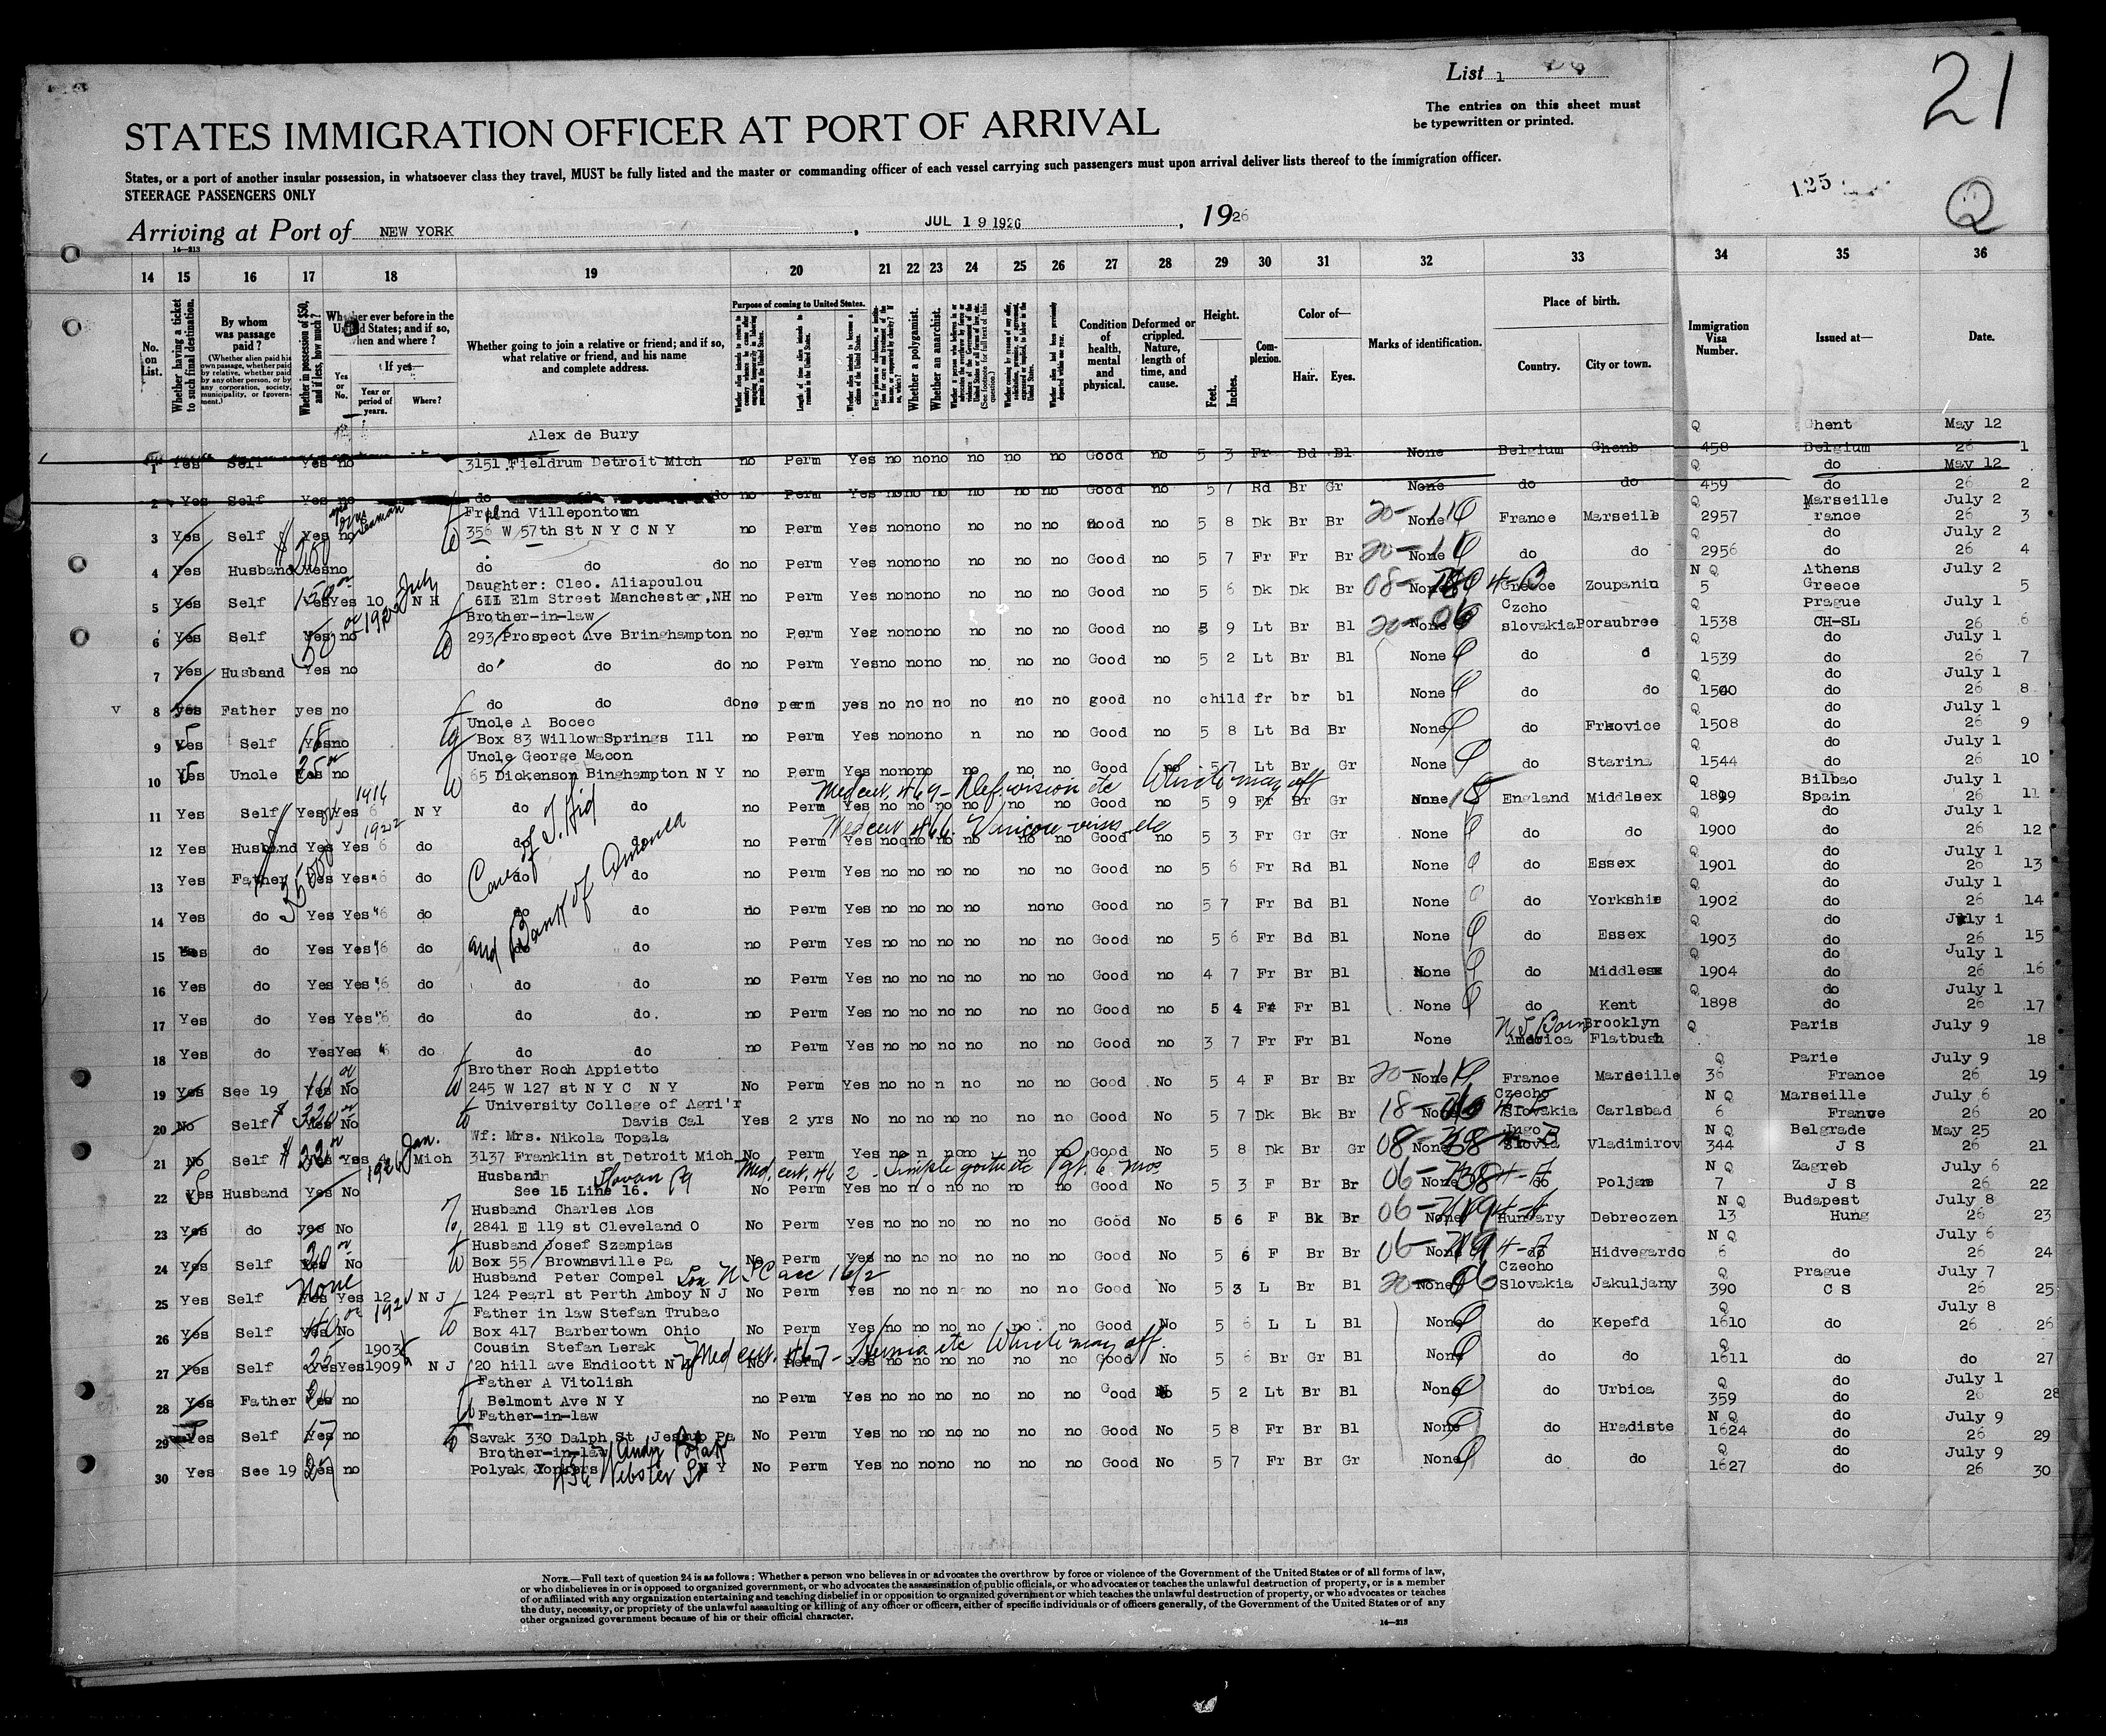 List 1
21
The entries on this sheet must
be typewritten or printed.
STATES IMMIGRATION OFFICER AT PORT OF ARRIVAL
States, or a port of another insular possession, in whatsoever class they travel, MUST be fully listed and the master or commanding officer of each vessel carrying such passengers must upon arrival deliver lists thereof to the immigration officer.
STEERAGE PASSENGERS ONLY
125
Q
Arriving at Port of NEW YORK , JUL 19 1926 , 1926
14—213
14 15 16 17 18 19 20 21 22 23 24 25 26 27 28 29 30 31 32 33 34 35 36
No. on List.
Whether having a ticket to such final destination.
By whom was passage paid?
(Whether alien paid his own passage, whether paid by relative, whether paid by any other person, or by any corporation, society, municipality, or government.)
Whether in possession of $50, and if less, how much?
Whether ever before in the United States; and if so, when and where?
If yes—
Yes or No.
Year or period of years.
Where?
Whether going to join a relative or friend; and if so, what relative or friend, and his name and complete address.
Purpose of coming to United States.
Whether a polygamist.
Whether an anarchist.
Condition of health, mental and physical.
Deformed or crippled. Nature, length of time, and cause.
Height.
Feet. Inches.
Complexion.
Color of—
Hair. Eyes.
Marks of identification.
Place of birth.
Country. City or town.
Immigration Visa Number.
Issued at—
Date.
Alex de Bury Q Ghent May 12
1 Yes Self Yes no 3151 Fieldrum Detroit Mich no Perm Yes no no no no no no Good no 5 3 Fr Bd Bl None Belgium Ghenb 458 Belgium 26 1
Q do May 12
2 Yes Self Yes no do do no Perm Yes no no no no no no Good no 5 7 Rd Br Gr None do do 459 do 26 2
Villepontown Q Marseille July 2
3 Yes Self Yes no seaman 356 W 57th St N Y C N Y no Perm Yes no no no no no no Good no 5 8 Dk Br Br None France Marseille 2957 France 26 3
Q do July 2
4 Yes Husband Yes no do do do no Perm Yes no no no no no no Good no 5 7 Fr Fr Br None do do 2956 do 26 4
Daughter: Cleo. Aliapoulou N Q Athens July 2
5 Yes Self Yes Yes 10 N H 611 Elm Street Manchester,NH no Perm Yes no no no no no no Good no 5 6 Dk Dk Br None Greece Zoupaniu 5 Greece 26 5
Brother-in-law Czcho Q Prague July 1
6 Yes Self Yes no 293 Prospect Ave Bringhampton no Perm Yes no no no no no no Good no 5 9 Lt Br Bl None slovakia Poraubree 1538 CH-SL 26 6
Q do July 1
7 Yes Husband Yes no do do do no Perm Yes no no no no no no Good no 5 2 Lt Br Bl None do d 1539 do 26 7
Q do July 1
v 8 yes Father yes no do do do no perm yes no no no no no no good no child fr br bl None do do 1540 do 26 8
Uncle A Bocec Q do July 1
9 Yes Self Yes no Box 83 Willow Springs Ill no Perm Yes no no no n no no Good no 5 8 Lt Bd Br None do Frkovice 1508 do 26 9
Uncle George Macon Q do July 1
10 Yes Uncle Yes no 65 Dickenson Binghampton N Y no Perm Yes no no no no no no Good no 5 7 Lt Br Gr None do Starina 1544 do 26 10
1916 Med cert 469 - Def. vision etc Which may aff Q Bilbao July 1
11 Yes Self Yes Yes 6 N Y do do no Perm Yes no no no no no no Good no 5 9 Fr Br Gr None England Middlsex 1899 Spain 26 11
1922 Med cert 466. Varicose veins etc Q do July 1
12 Yes Husband Yes Yes 6 do do do no Perm Yes no no no no no no Good no 5 3 Fr Gr Gr None do do 1900 do 26 12
Q do July 1
13 Yes Father Yes Yes 6 do do do no Perm Yes no no no no no no Good no 5 6 Fr Rd Bl None do Essex 1901 do 26 13
Care of
and Bank of
Q do July 1
14 Yes do Yes Yes 6 do do do no Perm Yes no no no no no no Good no 5 7 Fr Bd Bl None do Yorkshire 1902 do 26 14
Q do July 1
15 Yes do Yes Yes 6 do do do no Perm Yes no no no no no no Good no 5 6 Fr Bd Bl None do Essex 1903 do 26 15
Q do July 1
16 Yes do Yes Yes 6 do do do no Perm Yes no no no no no no Good no 4 7 Fr Br Bl None do Middlesex 1904 do 26 16
Q do July 1
17 Yes do Yes Yes 6 do do do. no Perm Yes no no no no no no Good no 5 4 Fr Fr Bl None do Kent 1898 do 26 17
Born Brooklyn Q Paris July 9
18 Yes do Yes Yes 6 do do do no Perm Yes no no no no no no Good no 3 7 Fr Fr Bl None America Flatbush 18
Brother Roch Appietto Q Parie July 9
19 Yes See 19 Yes No 245 W 127 st N Y C N Y No Perm Yes no no n no no no Good No 5 4 F Br Br None France Marseille 36 France 26 19
University College of Agri'r Czecho N Q Marseille July 6
20 No Self Yes No Davis Cal Yes 2 yrs No no no no no no no Good No 5 7 Dk Bk Br None Slovakia Carlsbad 6 France 26 20
Wf: Mrs. Nikola Topala Jan. Jugo N Q Belgrade May 25
21 No Self Yes Yes Mich 3137 Franklin st Detroit Mich No Perm Yes no n no no no no Good No 5 8 Dk Br Gr None Slovia Vladimirov 344 J S 26 21
Husband Med. cert. 462 - Simple goitre etc N Q Zagreb July 6
22 Yes Husband Yes No See 15 Line 16. No Perm Yes no no no no no no Good No 5 3 F Br Br None do Poljane 7 J S 26 22
Husband Charles Aos N Q Budapest July 8
23 Yes do yes No 2841 E 119 st Cleveland O No Perm Yes no no no no no no Good No 5 6 F Bk Br None Hungary Debreozen 13 Hung 26 23
Husband Josef Szampias N Q July 6
24 Yes Self Yes No Box 55 Brownsville Pa No Perm Yes no no no no no no Good No 5 6 F Br Br None do Hidvegardo 6 do 26 24
Husband Peter Compel Czecho Q Prague July 7
25 Yes Self None Yes Yes 12 N J 124 Pearl st Perth Amboy N J No Perm Yes no no no no no no Good No 5 3 L Br Bl None Slovakia Jakuljany 390 C S 26 25
Father in law Stefan Trubao Q July 8
26 Yes Self Yes No Box 417 Barbertown Ohio No Perm Yes no no no no no no Good No 5 6 L L Bl None do Kepefd 1610 do 26 26
Cousin Stefan Lerak 1903 Med cert. 467 - Hernia etc Which may aff. Q
27 Yes Self Yes Yes 1909 N J 20 hill ave Endicott N Y No Perm Yes no no no no no no Good No 5 6 Br Gr Bl None do do 1611 do do 27
Father A Vitolish Q do July 1
28 Yes Father Yes no Belmomt Ave N Y no Perm Yes no no no no no no Good No 5 2 Lt Br Bl None do Urbica 359 do 26 28
Father-in-law N Q do July 9
29 Yes Self Yes no Savak 330 Dalph St Jessup Pa No Perm Yes no no no no no no Good No 5 8 Fr Br Bl None do Hradiste 1624 do 26 29
Brother-in-law Andy Polak Q do July 9
30 Yes See 19 Yes no Polyak Yonkers N Y 436 Webster No Perm Yes no no no no no no Good No 5 7 Fr Br Gr None do do 1627 do 26 30
NOTE.—Full text of question 24 is as follows: Whether a person who believes in or advocates the overthrow by force or violence of the Government of the United States or of all forms of law,
or who disbelieves in or is opposed to organized government, or who advocates the assassination of public officials, or who advocates or teaches the unlawful destruction of property, or is a member
of or affiliated with any organization entertaining and teaching disbelief in or opposition to organized government or which teaches the unlawful destruction of property, or who advocates or teaches
the duty, necessity, or propriety of the unlawful assaulting or killing of any officer or officers, either of specific individuals or of officers generally, of the Government of the United States or of any
other organized government because of his or their official character.
14—213